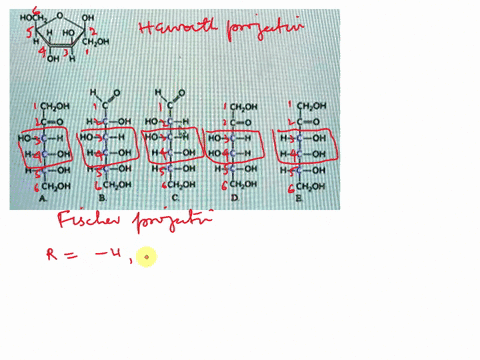 6
HOCH₂ O OH
5 H HO 2
H CH₂OH
4 3 1
OH H
Haworth projectin
H O H O
1 CH₂OH 1 C 1 C 1 CH₂OH 1 CH₂OH
2 C=O H-2-OH 2 2 C=O 2 C=O
HO-3-H HO-3-H 3 HO-3-H H-3-OH
H-4-OH H-4-OH H-4-OH HO-4-H H-4-OH
H-5-OH H-5-OH H-5-OH H-5-OH H-5-OH
6 CH₂OH 6 CH₂OH 6 CH₂OH 6 CH₂OH 6 CH₂OH
A. B. C. D. E.
Fischer projectin
R = -H,